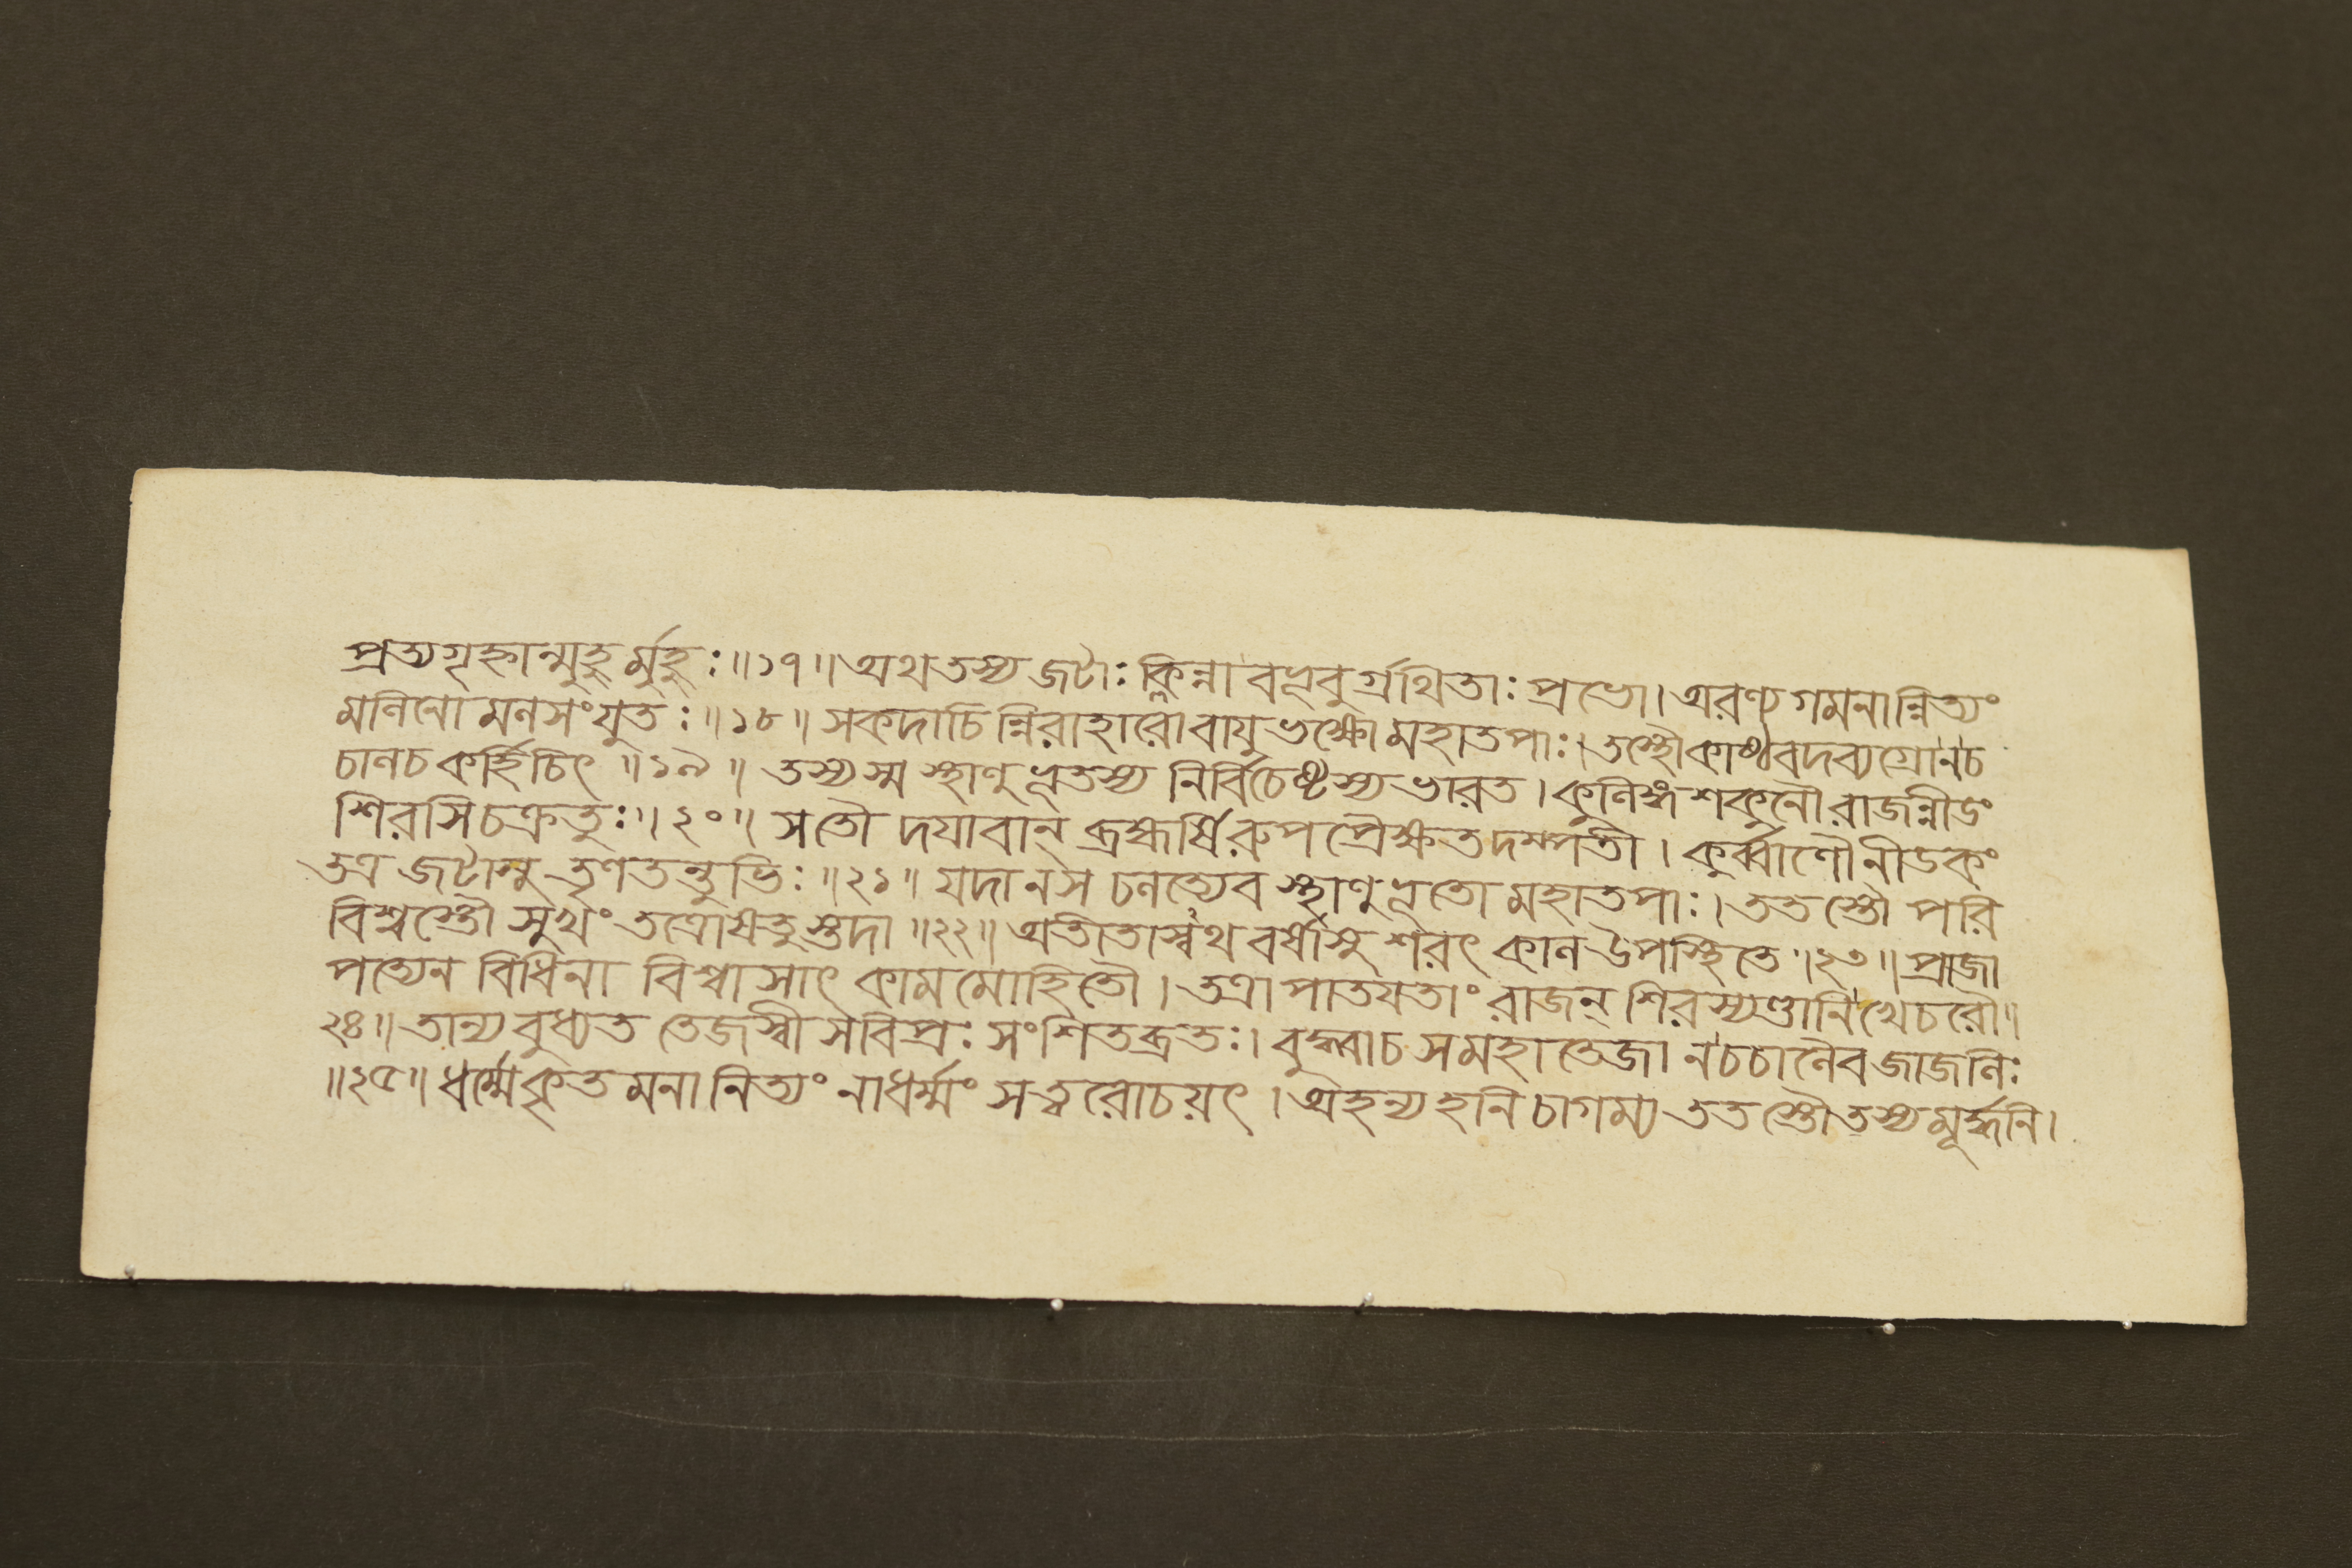 প্রত্যগৃহ্নান্মুহুর্মুহুঃ॥১৭॥অথতস্য জটাঃ ক্লিন্না বভূবুর্গ্রথিতাঃ প্রভো।অরণ্য গমনান্নিত্যং
মলিনো মলসংযুতঃ॥১৮॥ সকদাচিন্নিরাহারো বায়ুভক্ষো মহাতপাঃ।তস্থৌকাষ্ঠবদব্যগ্রোনচ
চালচ কর্হিচিৎ ॥১৯॥ তস্যস্ম স্থাণুভূতস্য নির্বিচেষ্টস্য ভারত।কুলিঙ্গ শকুনৌ রাজন্নীডং
শিরসি চক্রতুঃ॥২০॥ সতৌ দয়াবান্ ব্রহ্মর্ষিরুপপ্রৈক্ষতদম্পতী। কুর্ব্বাণৌ নীডকং
তত্র জটাসু তৃণতন্তুভিঃ॥২১॥ যদানস চলত্যেব স্থাণুভূতো মহাতপাঃ।ততস্তৌ পরি
বিশ্বস্তৌ সুখং তত্রোষতুস্তদা॥২২॥ অতীতাস্বথ বর্ষাসু শরৎ কাল উপস্থিতে॥২৩॥ প্রাজা
পত্যেন বিধিনা বিশ্বাসাৎ কামমোহিতৌ। তত্রাপাতয়তাং রাজন্ শিরস্যণ্ডানিখেচরৌ॥
২৪॥ তান্যবুধ্যত তেজস্বী সবিপ্রঃ সংশিতব্রতঃ। বুদ্ধ্বাচ সমহাতেজা নচচালৈব জাজলিঃ
॥২৫॥ ধর্ম্মেকৃতমনা নিত্যং নাধর্ম্মং সত্বরোচয়ৎ। অহন্যহনি চাগম্য ততস্তৌতস্যমূর্দ্ধনি।